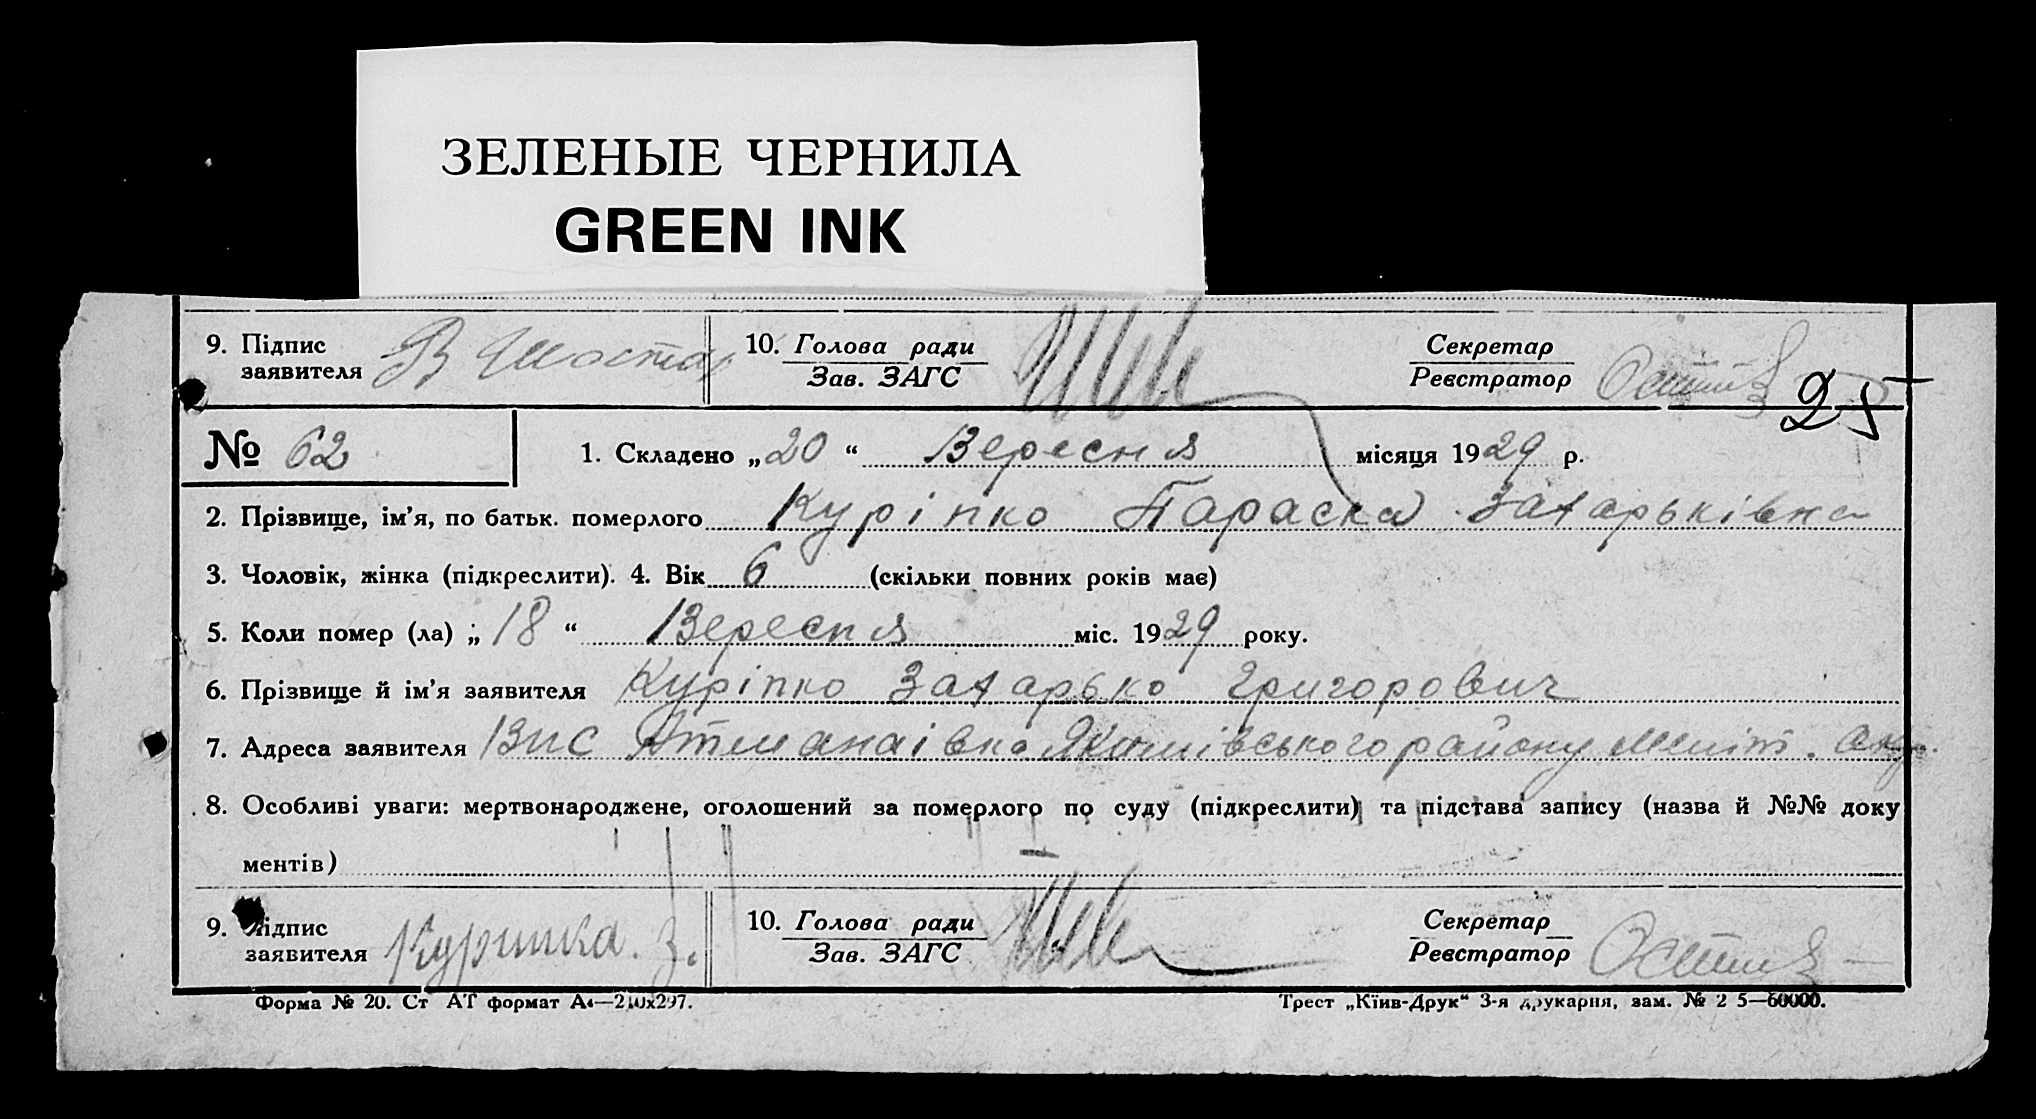 ЗЕЛЕНЫЕ ЧЕРНИЛА
GREEN INK
9. Підпис заявителя 10. Голова ради Зав. ЗАГС Секретар Реєстратор
25
№ 62 1. Складено „20“ Вересня місяця 1929 р.
2. Прізвище, ім’я, по батьк. померлого Куріпко Параска Захарьківна
3. Чоловік, жінка (підкреслити). 4. Вік 6 (скільки повних років має)
5. Коли помер (ла) „18“ Вересня міс. 1929 року.
6. Прізвище й ім’я заявителя Куріпко Захарько Григорович
7. Адреса заявителя Атманаівка Якимівського району Меліт. окр.
8. Особливі уваги: мертвонароджене, оголошений за померлого по суду (підкреслити) та підстава запису (назва й №№ доку
ментів)
9. Підпис заявителя Курипка. З. 10. Голова ради Зав. ЗАГС Секретар Реєстратор
Форма № 20. Ст АТ формат А4—210х297. Трест „Київ-Друк“ 3-я друкарня, зам. № 2 5—60000.